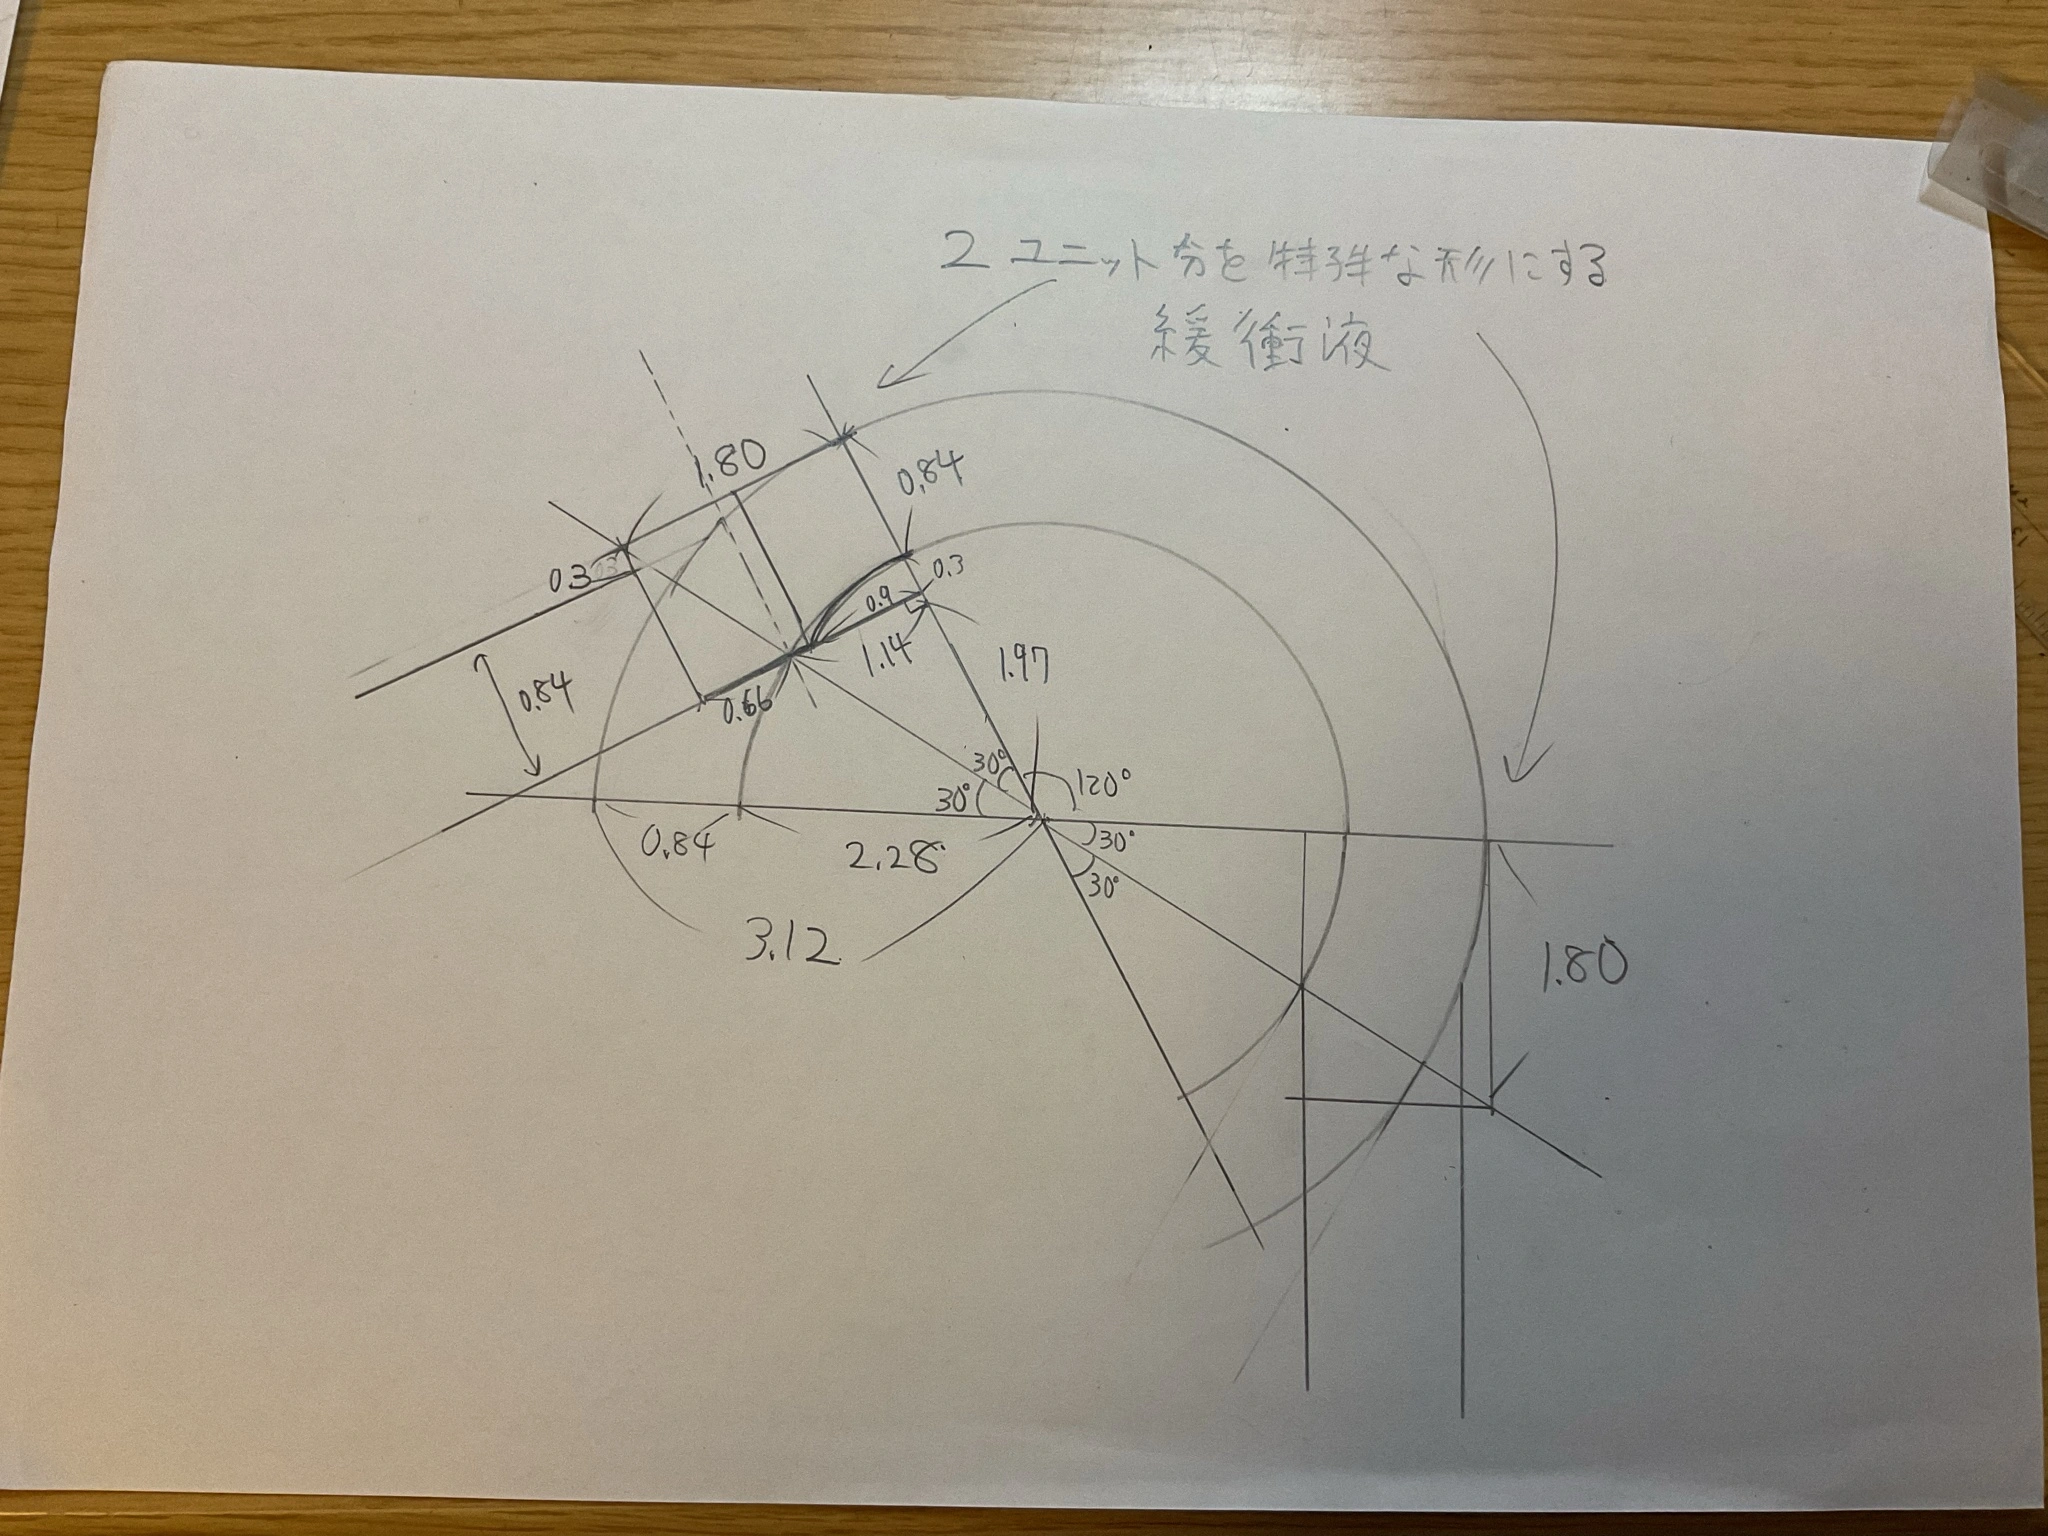 2 ユニット分を特殊な形にする
緩衝液
1.80
0.84
0.3
0.3
0.9
1.14
1.97
0.84
0.66
30°
30°
120°
30°
30°
0.84
2.28
3.12
1.80